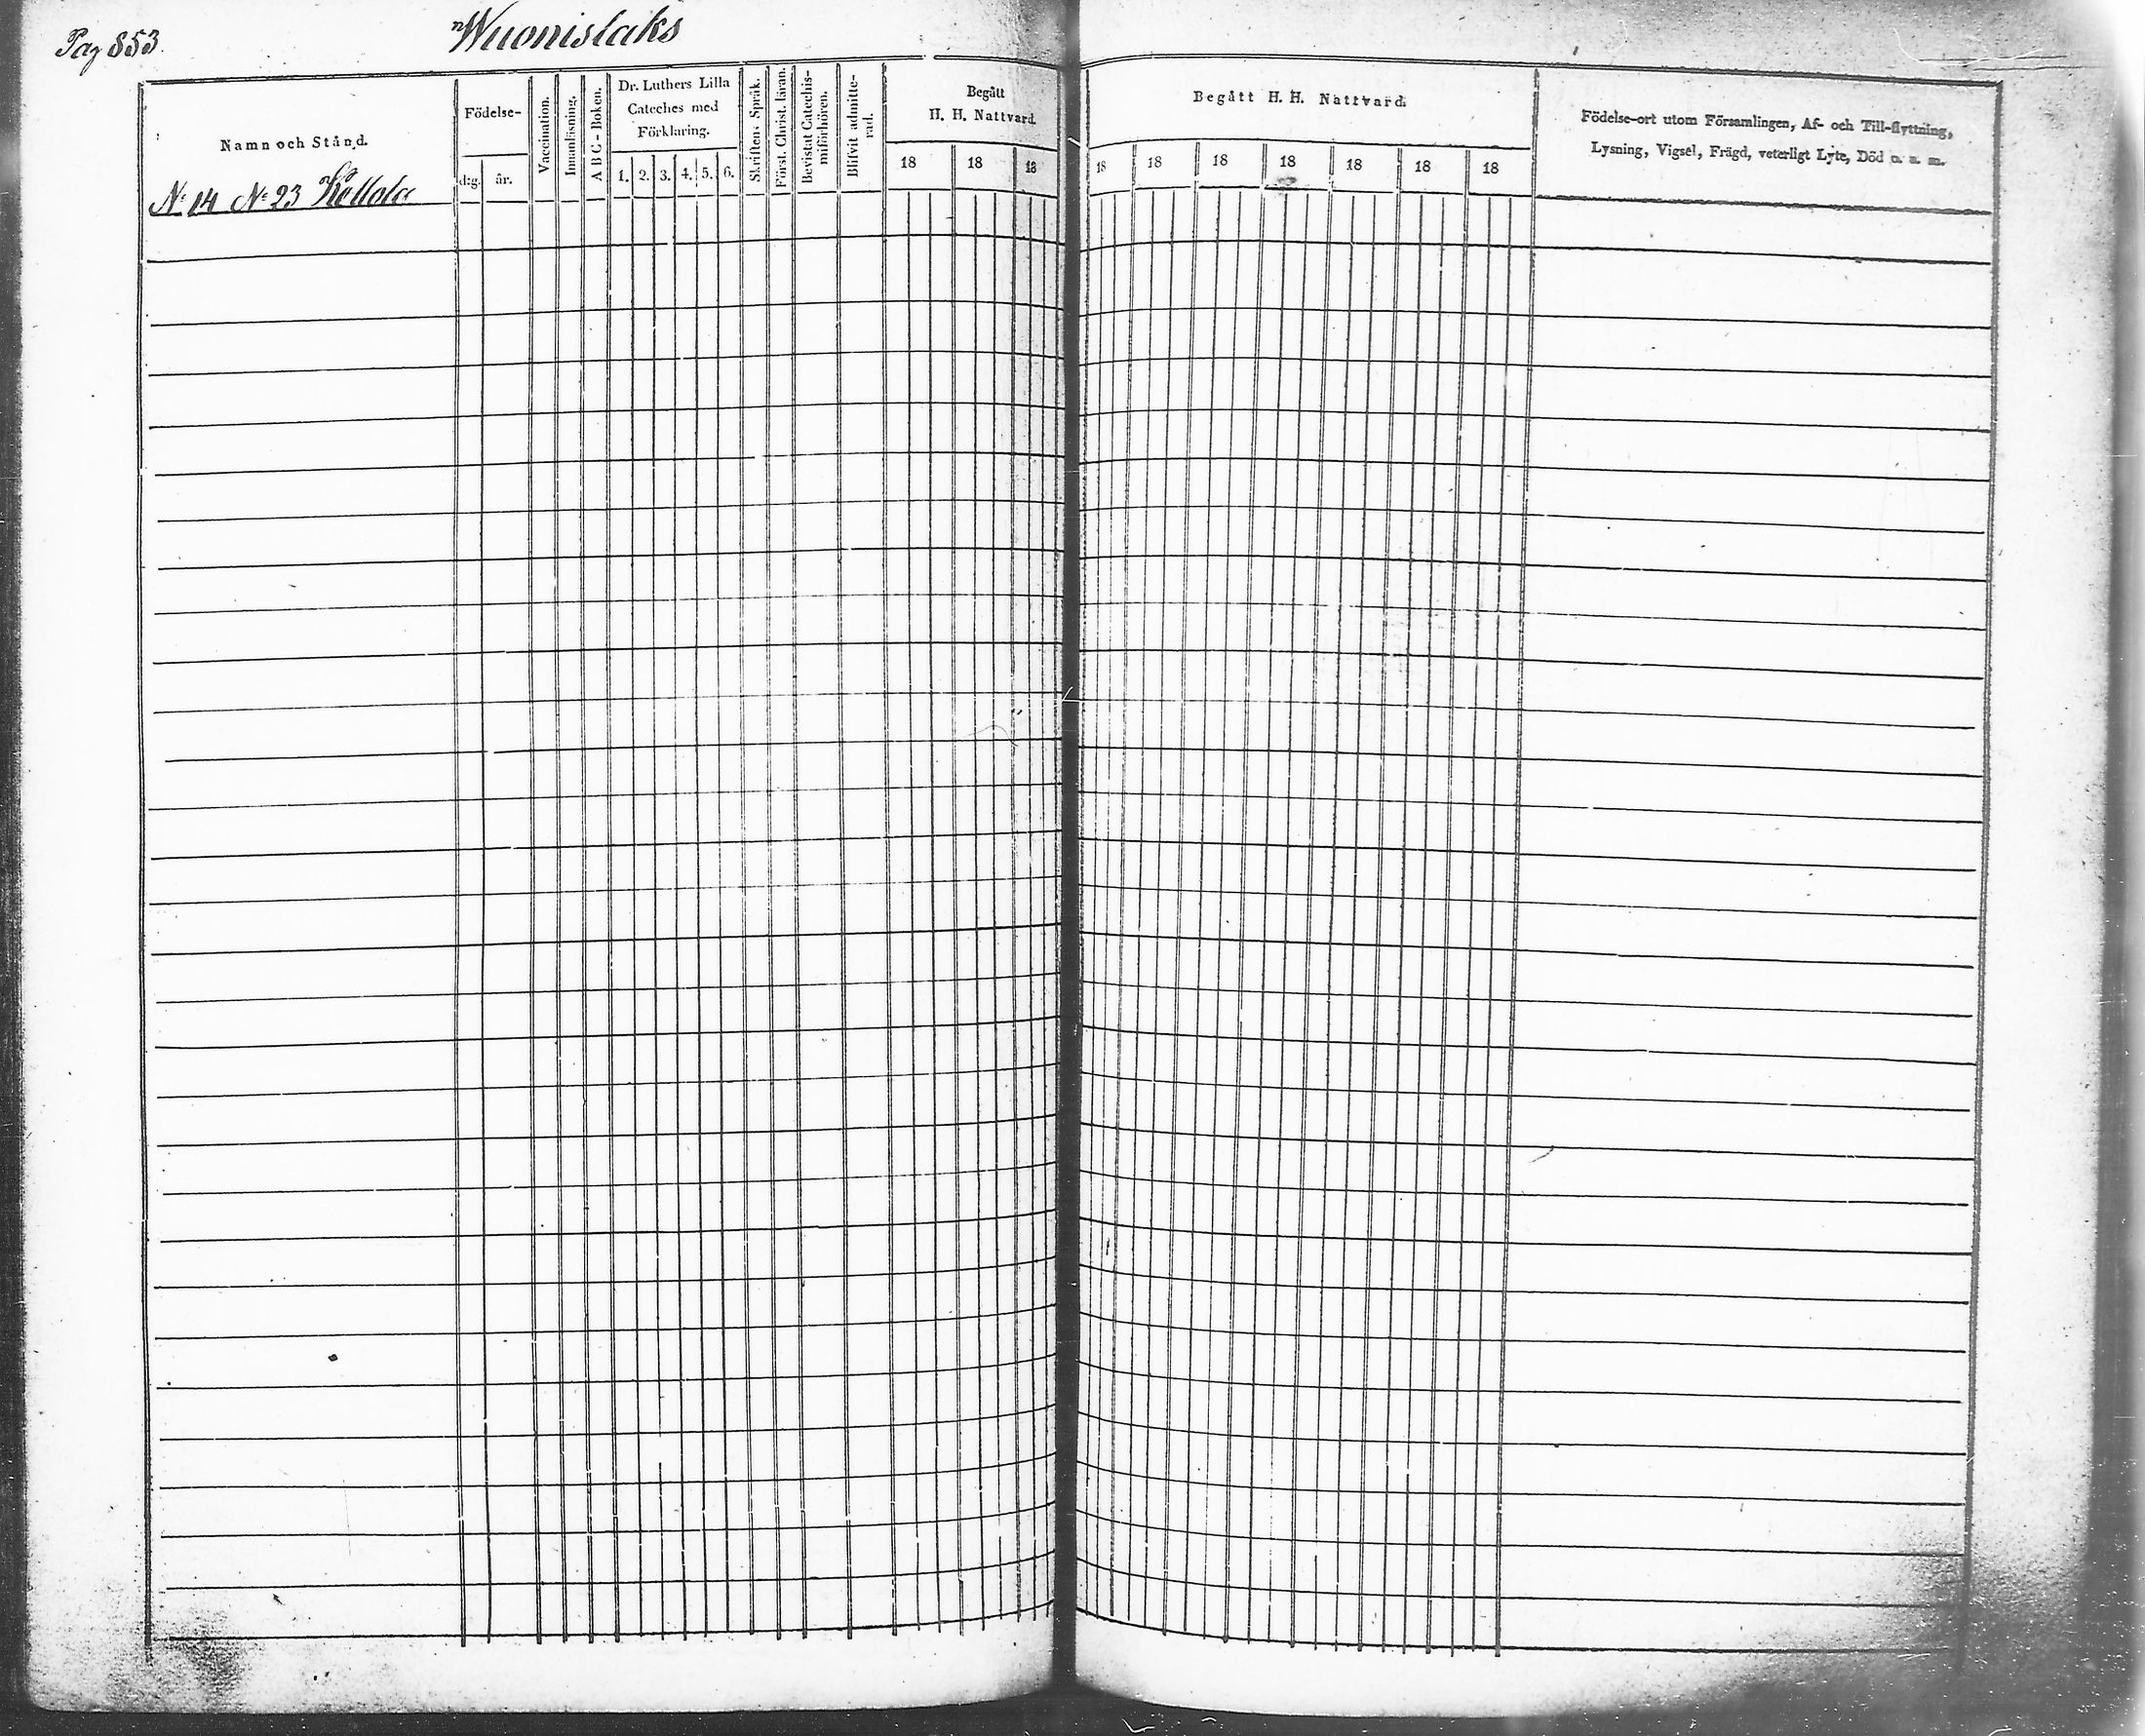 Pag 853
Wuonislaks
Namn och Stånd.
Födelse-
d:g. år.
Vaccination.
Innanläsning.
ABC-Boken.
Dr. Luthers Lilla
Cateches med
Förklaring.
1. 2. 3. 4. 5. 6.
Skriftens Språk.
Först. Christ. läran.
Bevistat Catechis-
miförhören.
Blifvit admitte-
rad.
Begått
H. H. Nattvard.
18 18 18
Begått H. H. Nattvard.
18 18 18 18 18 18 18
Födelse-ort utom Församlingen, Af- och Till-flyttning,
Lysning, Vigsel, Frägd, veterligt Lyte, Död n. a. m.
No 14 No 23 Kellola